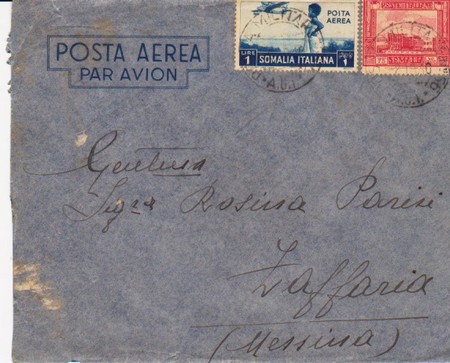 POSTA AEREA
PAR AVION
POSTA AEREA
LIRE 1
SOMALIA ITALIANA
POSTE ITALIANE
SOMALIA
Gentma
Sigra Rosina Parisi
Zaffaria
(Messina)